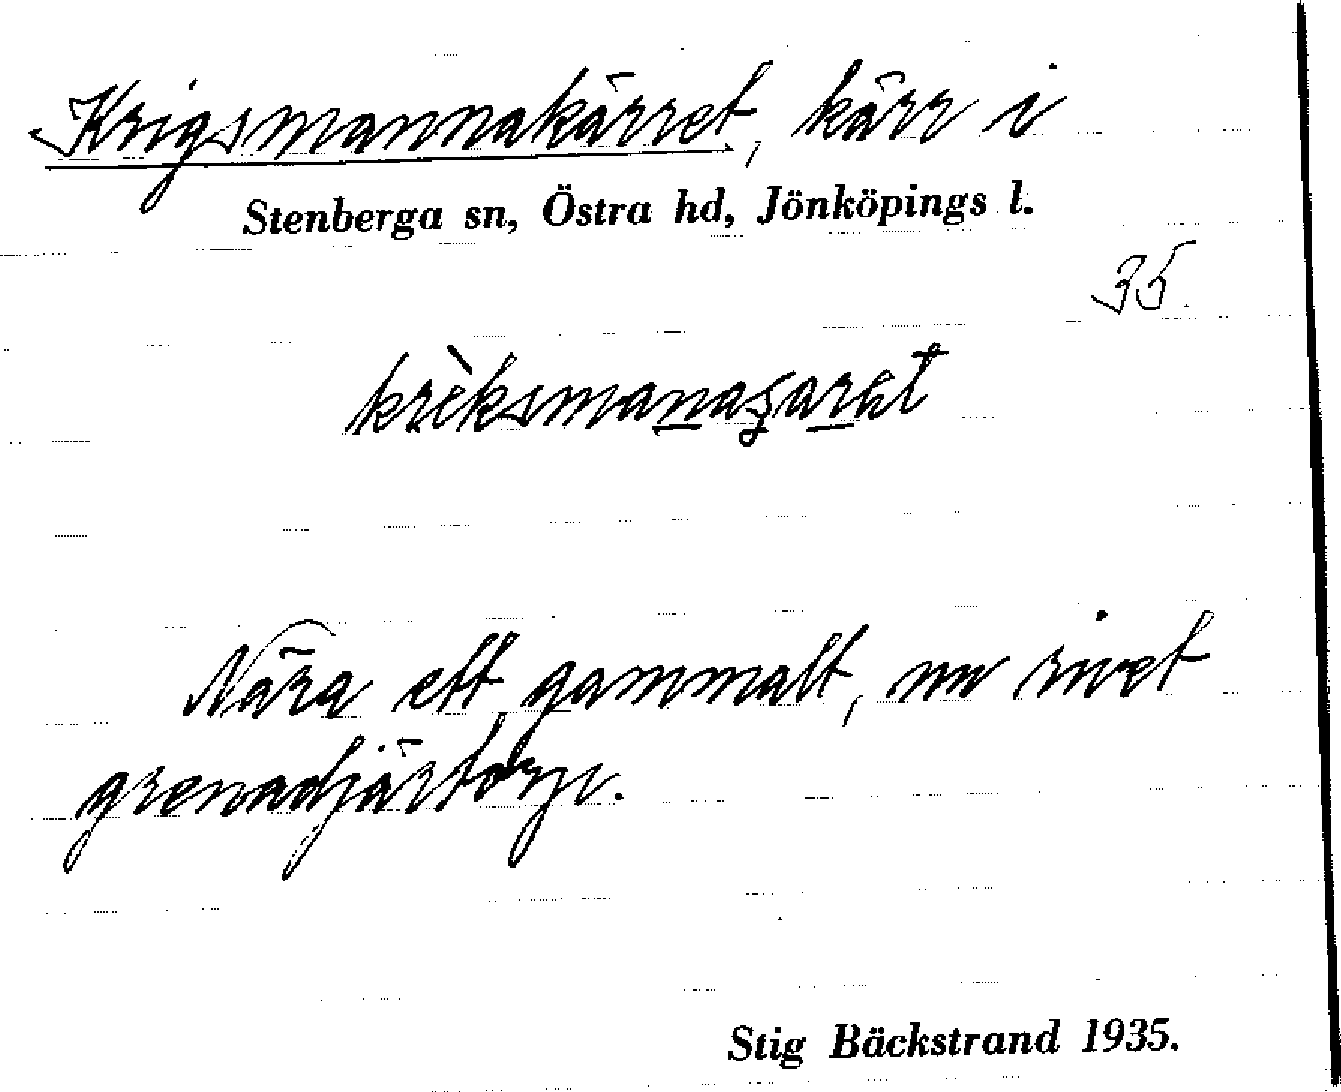 Krigsmannakärret, kärr i
Stenberga sn, Östra hd, Jönköpings l.
35
Nära ett gammalt, nu rivet
grenadjärtorp.
Stig Bäckstrand 1935.